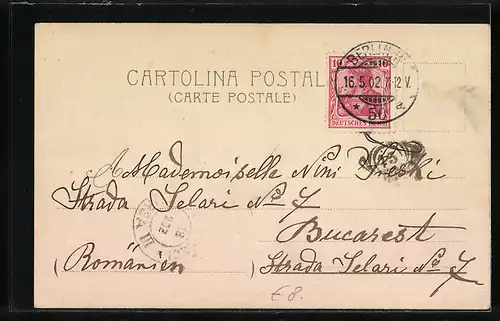 CARTOLINA POSTAL
(CARTE POSTALE)
10 10
DEUTSCHES REICH
BERLIN W.
16.5.02. 7-12 V.
* 50 a
A Mademoiselle Nini
Strada Selari No 7
Bucarest
(Românien) Strada Selari No 7
€8.